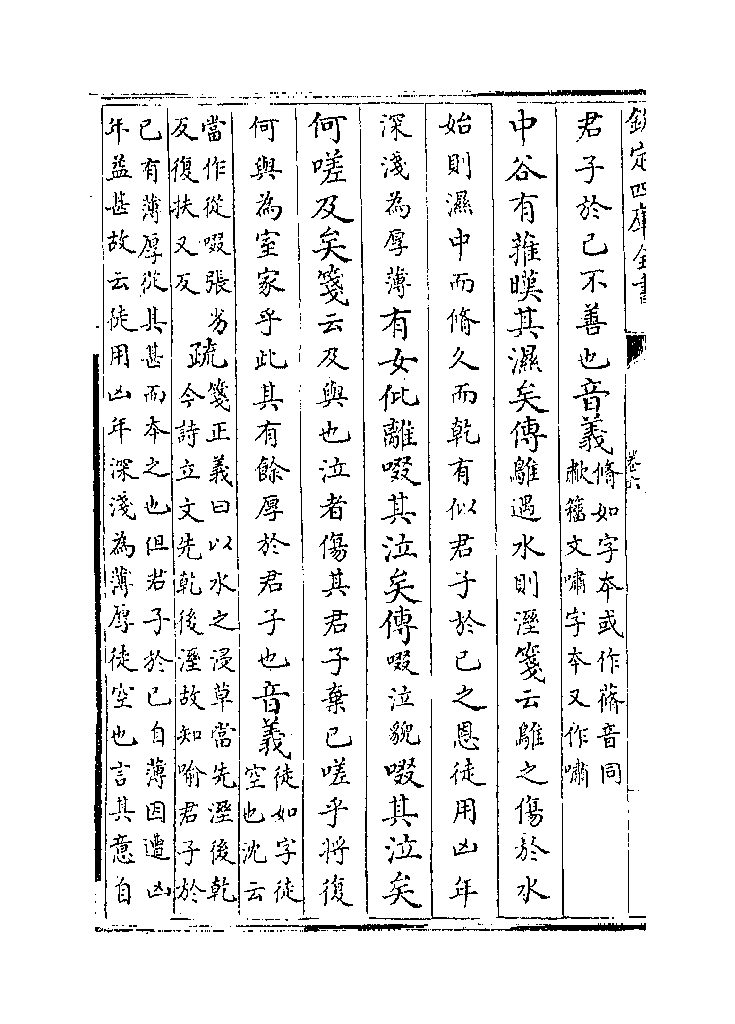 欽定四庫全書
卷六
君子於己不善也音義脩如字本或作蓨音同
歗籀文嘯字本又作嘯
中谷有蓷暵其濕矣傳鵻遇水則溼箋云鵻之傷於水
始則濕中而脩久而乾有似君子於已之恩徒用凶年
深淺為厚薄有女仳離啜其泣矣傳啜泣貌啜其泣矣
何嗟及矣箋云及與也泣者傷其君子棄已嗟乎將復
何與為室家乎此其有餘厚於君子也音義徒如字徒
空也沈云
當作從啜張劣
反復扶又反
疏箋正義曰以水之浸草當先溼後乾
今詩立文先乾後溼故知喻君子於
已有薄厚從其甚而本之也但君子於已自薄因遭凶
年益甚故云徒用凶年深淺為薄厚徒空也言其意自